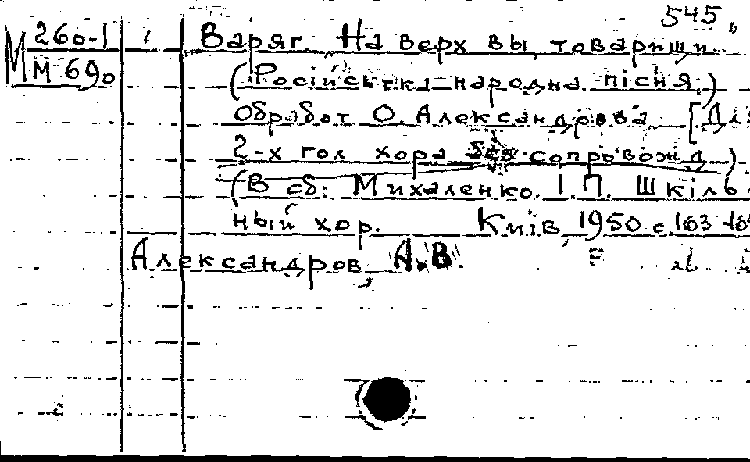 545
М 260-1 Варяг. На верх вы, товарищи
М 690 (Російська народна пісня.)
Обработ О. Александрова [Для
2-х гол хора без сопровожд)
(В сб: Михаленко. І. П. Шкіль
ный хор. Київ, 1950 с. 163
Александров, А.В.